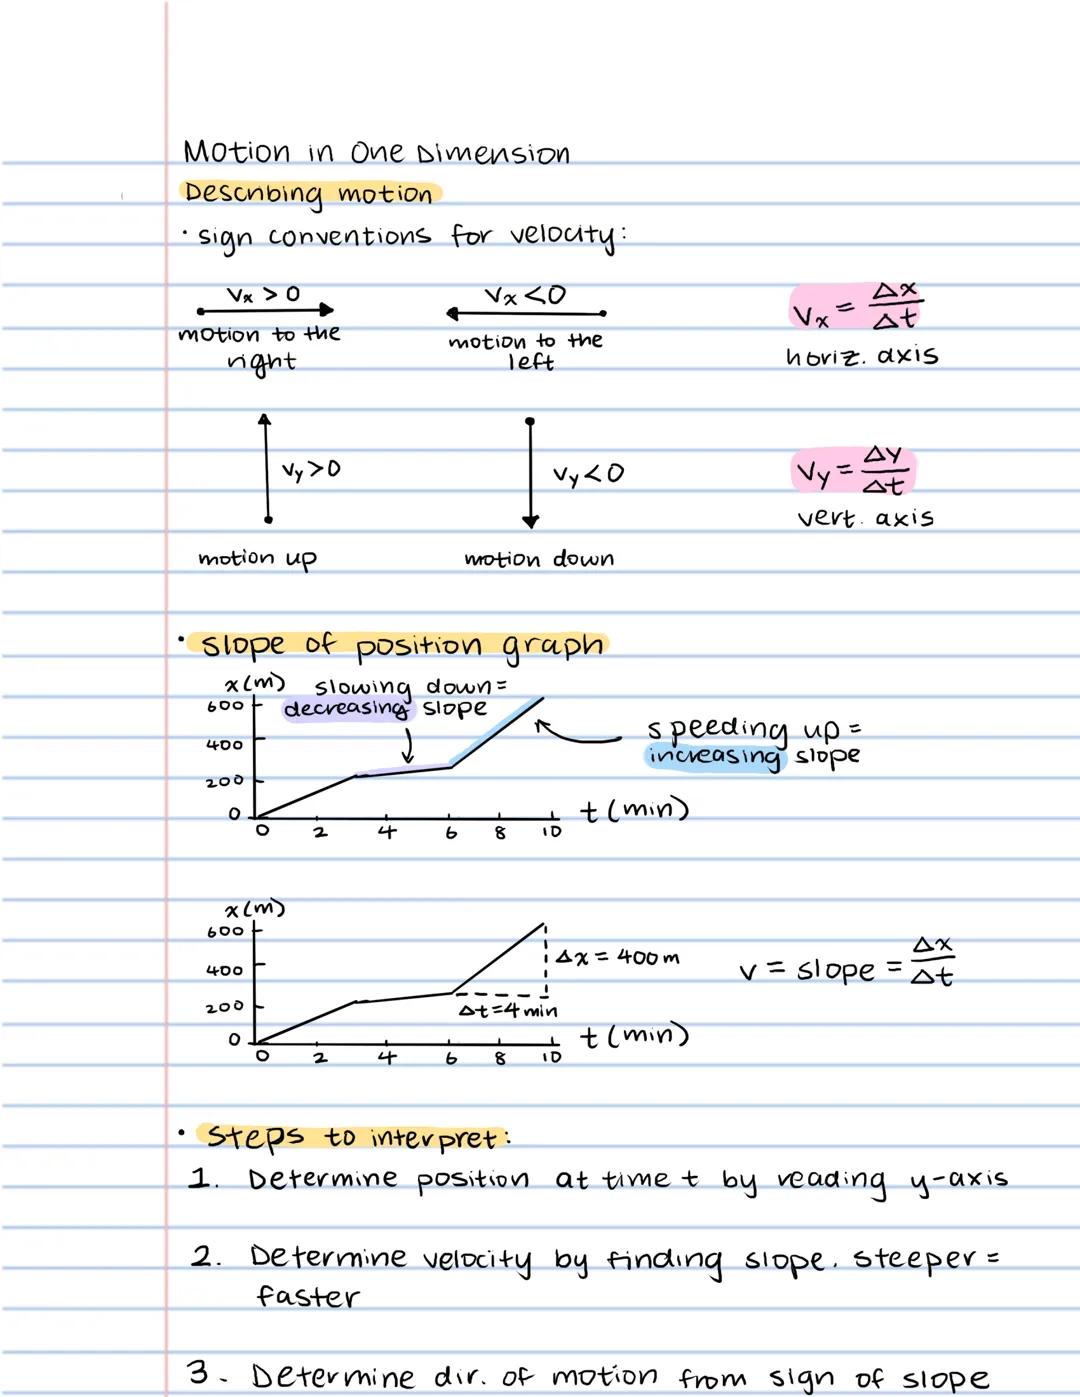 Motion in One Dimension
Describing motion
• sign conventions for velocity:
Vx > 0
motion to the
right
Vx < 0
motion to the
left
Vx = Δx/Δt
horiz. axis
Vy > 0
motion up
Vy < 0
motion down
Vy = Δy/Δt
vert. axis
• slope of position graph
x(m)
slowing down=
decreasing slope
600
400
200
0
0 2 4 6 8 10
t (min)
speeding up =
increasing slope
x(m)
600
400
200
0
0 2 4 6 8 10
t (min)
Δx = 400m
Δt=4min
v = slope = Δx/Δt
• Steps to interpret:
1. Determine position at time t by reading y-axis
2. Determine velocity by finding slope. steeper =
faster
3. Determine dir. of motion from sign of slope